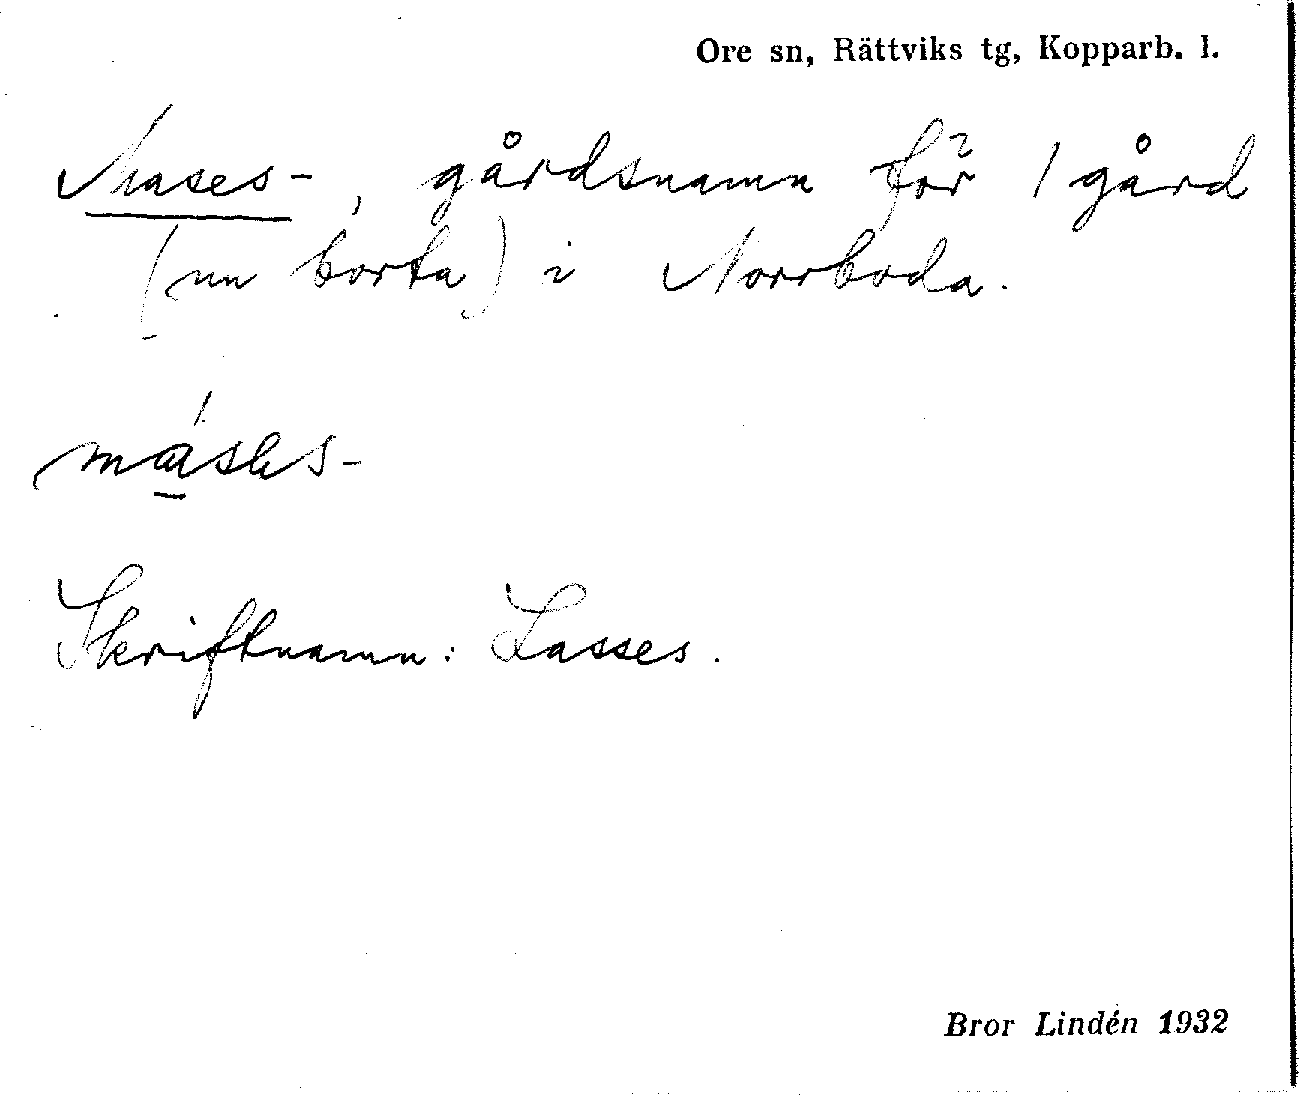 Ore sn, Rättviks tg, Kopparb. l.
Mases-, gårdsnamn för 1 gård
(nu borta) i Norrboda.
Skriftnamn: Lasses.
Bror Lindén 1932